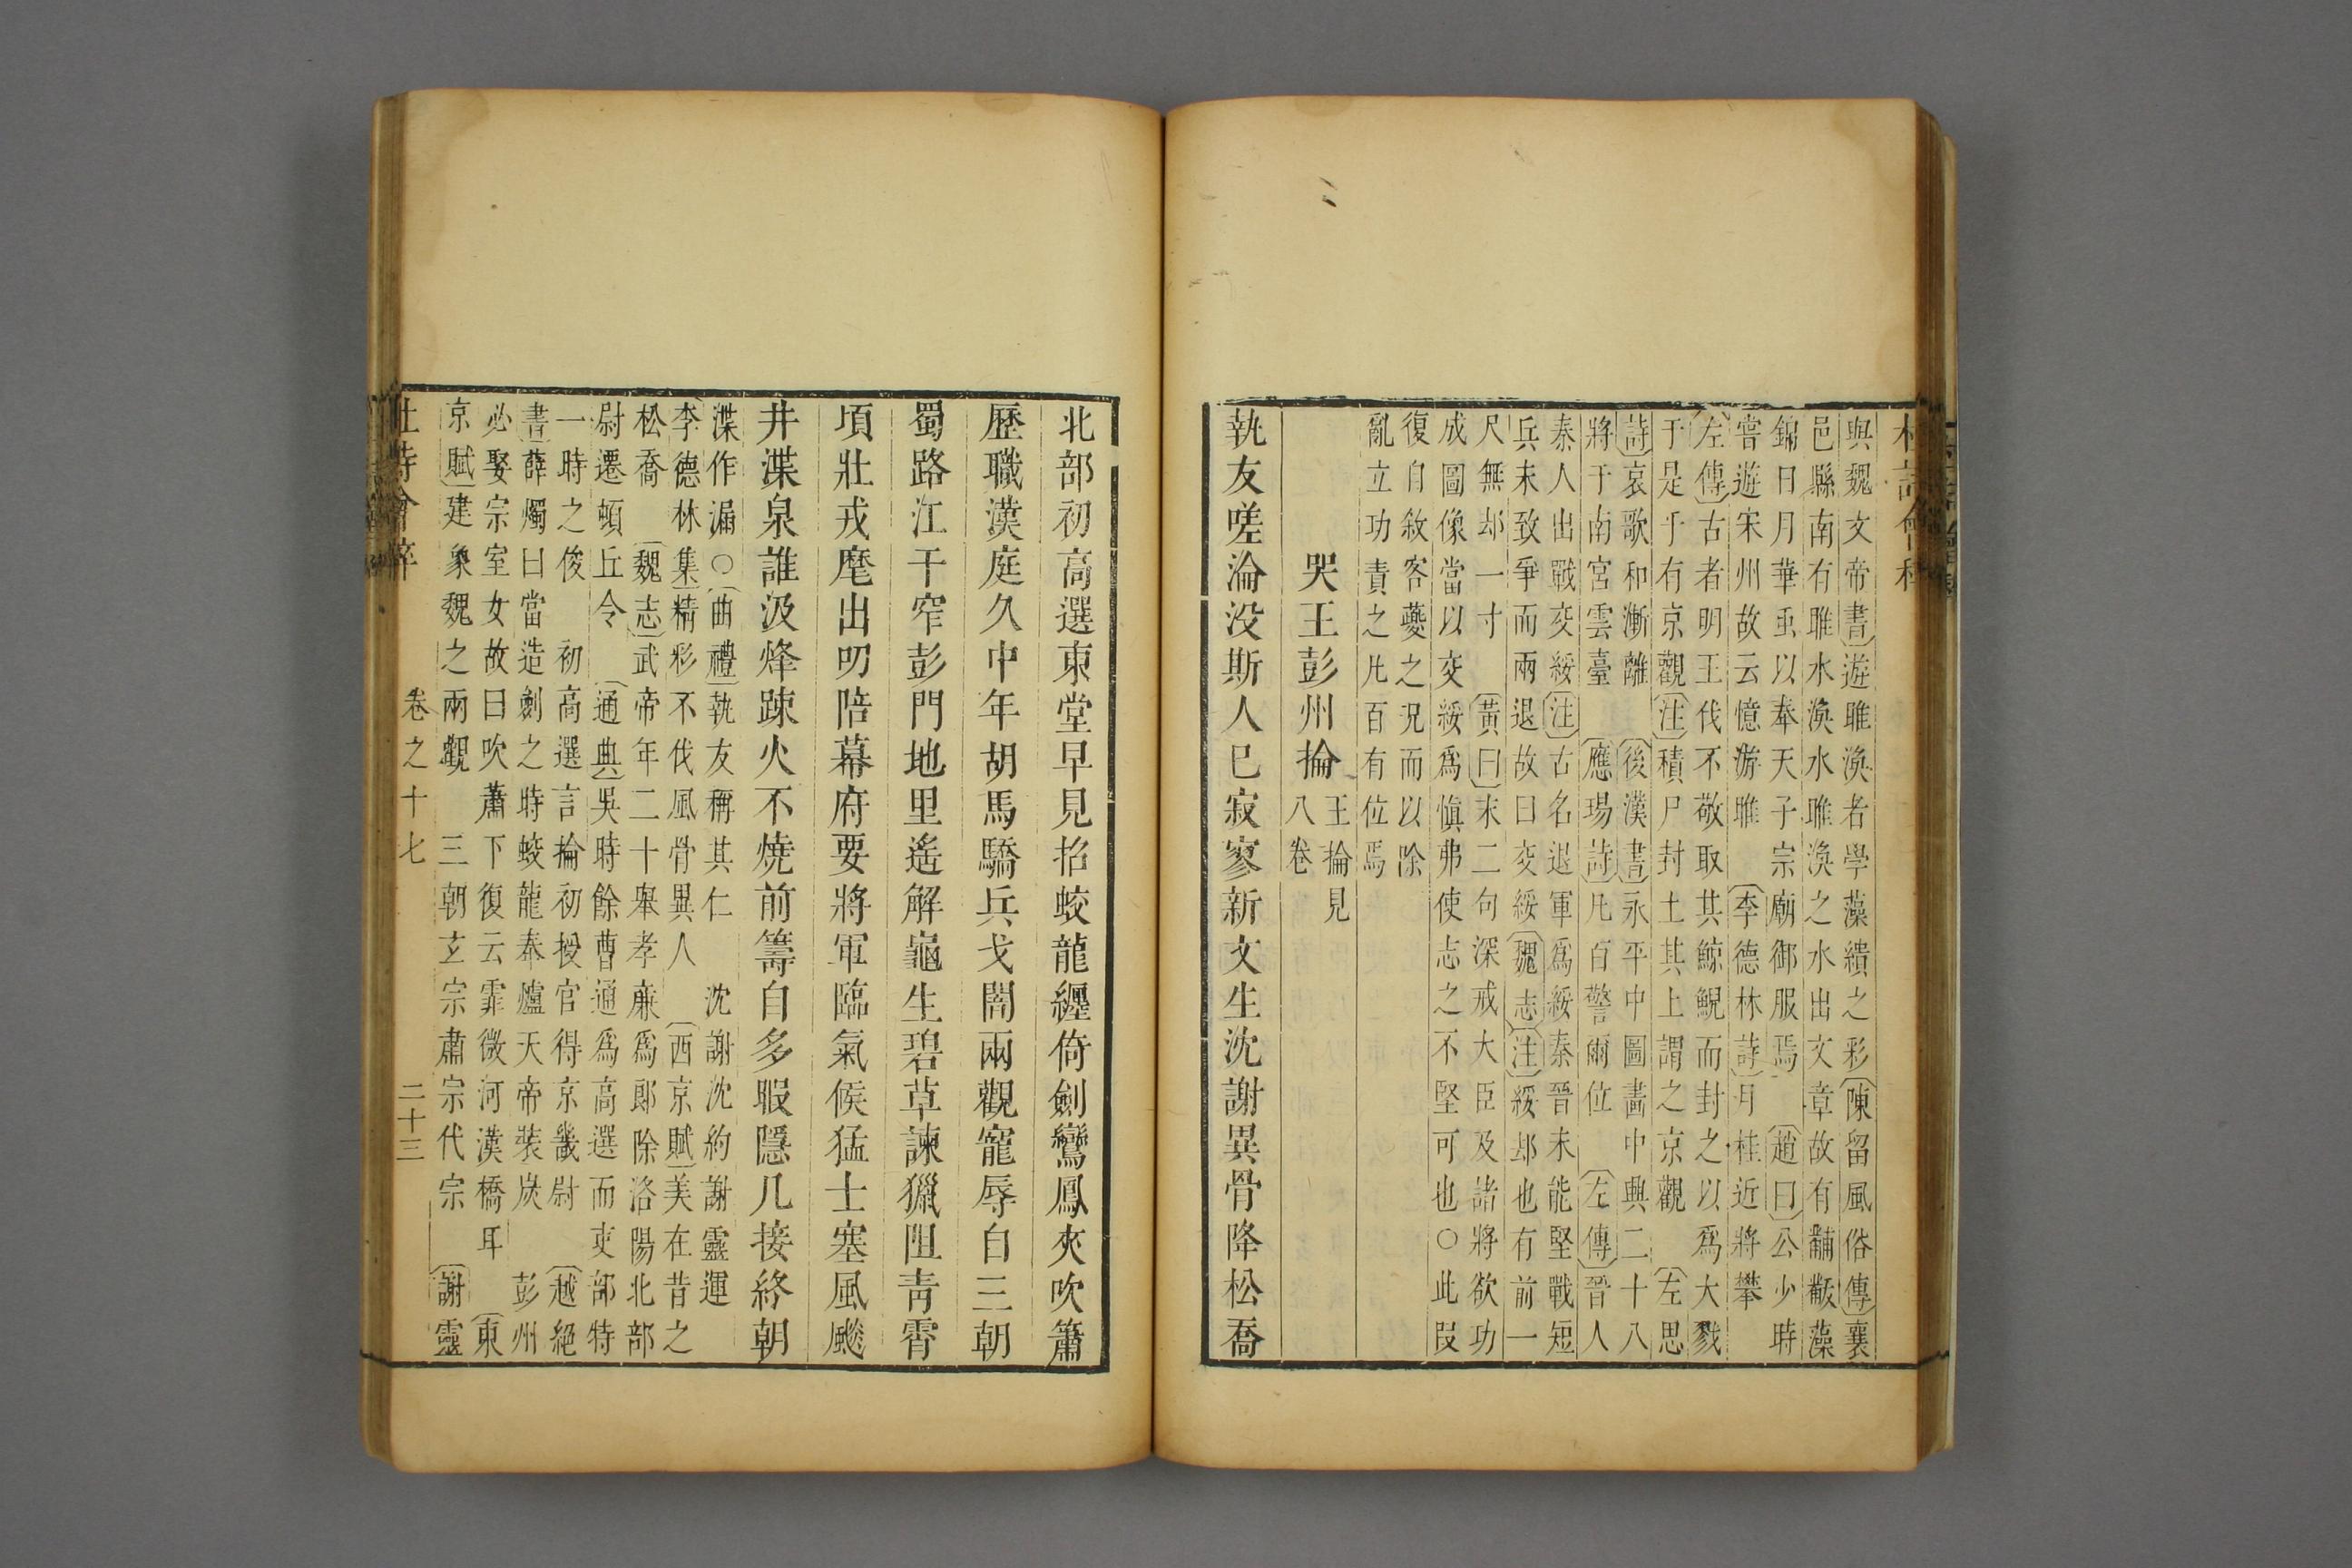 杜詩會稡
與魏文帝書遊雎渙者學藻繢之彩陳留風俗傳襄
邑縣南有雎水渙水雎渙之水出文章故有黼黻藻
錦日月華虫以奉天子宗廟御服焉 趙曰公少時
嘗遊宋州故云憶游雎 李德林詩月桂近將攀
左傳古者明王伐不敬取其鯨鯢而封之以爲大戮
于是乎有京觀注積尸封土其上謂之京觀 左思
詩哀歌和漸離 後漢書永平中圖畵中興二十八
將于南宮雲臺 應瑒詩凡百警爾位 左傳晉人
秦人出戰交綏注古名退軍爲綏秦晉未能堅戰短
兵未致爭而兩退故曰交綏魏志注綏却也有前一
尺無却一寸 黃曰末二句深戒大臣及諸將欲功
成圖像當以交綏爲愼弗使志之不堅可也○此叚
復自敘客夔之况而以除
亂立功責之凡百有位焉
哭王彭州掄 王掄見
八卷
執友嗟淪没斯人已寂寥新文生沈謝異骨降松喬
北部初高選東堂早見招蛟龍纏倚劍鸞鳳夾吹簫
歷職漢庭久中年胡馬驕兵戈闇兩觀寵辱自三朝
蜀路江干窄彭門地里遙解龜生碧草諫獵阻青霄
頃壯戎麾出叨陪幕府要將軍臨氣候猛士塞風飈
井渫泉誰汲烽踈火不燒前籌自多暇隱几接終朝
渫作漏○曲禮執友稱其仁 沈謝沈約謝靈運
李德林集精彩不伐風骨異人 西京賦美在昔之
松喬 魏志武帝年二十舉孝亷爲郎除洛陽北部
尉遷頓丘令 通典吳時餘曹通爲高選而吏部特
一時之俊 初高選言掄初授官得京畿尉 越絕
書薛燭曰當造劍之時蛟龍奉爐天帝裝炭 彭州
必娶宗室女故曰吹蕭下復云霏微河漢橋耳 東
京賦建象魏之兩觀 三朝玄宗肅宗代宗 謝靈
杜詩會稡 卷之十七 二十三